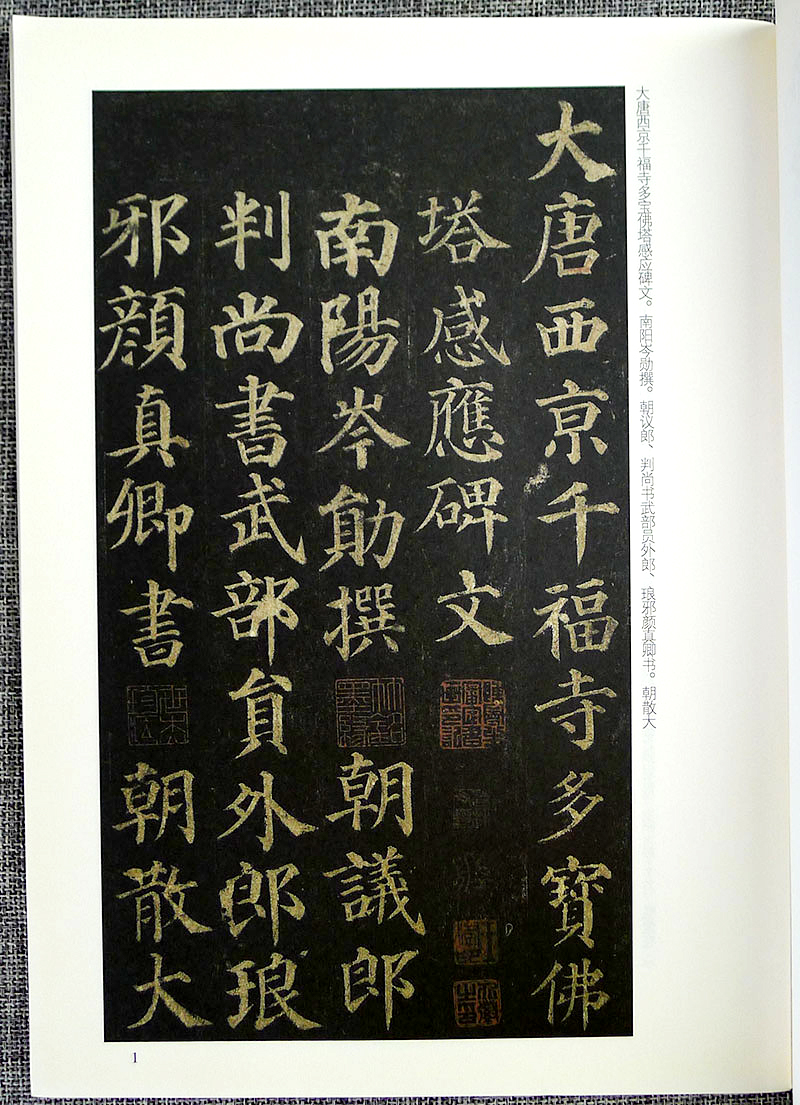 大唐西京千福寺多宝佛塔感应碑文。南阳岑勋撰。朝议郎、判尚书武部员外郎、琅邪颜真卿书。朝散大
大唐西京千福寺多寶佛
塔感應碑文
南陽岑勛撰朝議郎
判尚書武部員外郎琅
邪顏真卿書朝散大
1